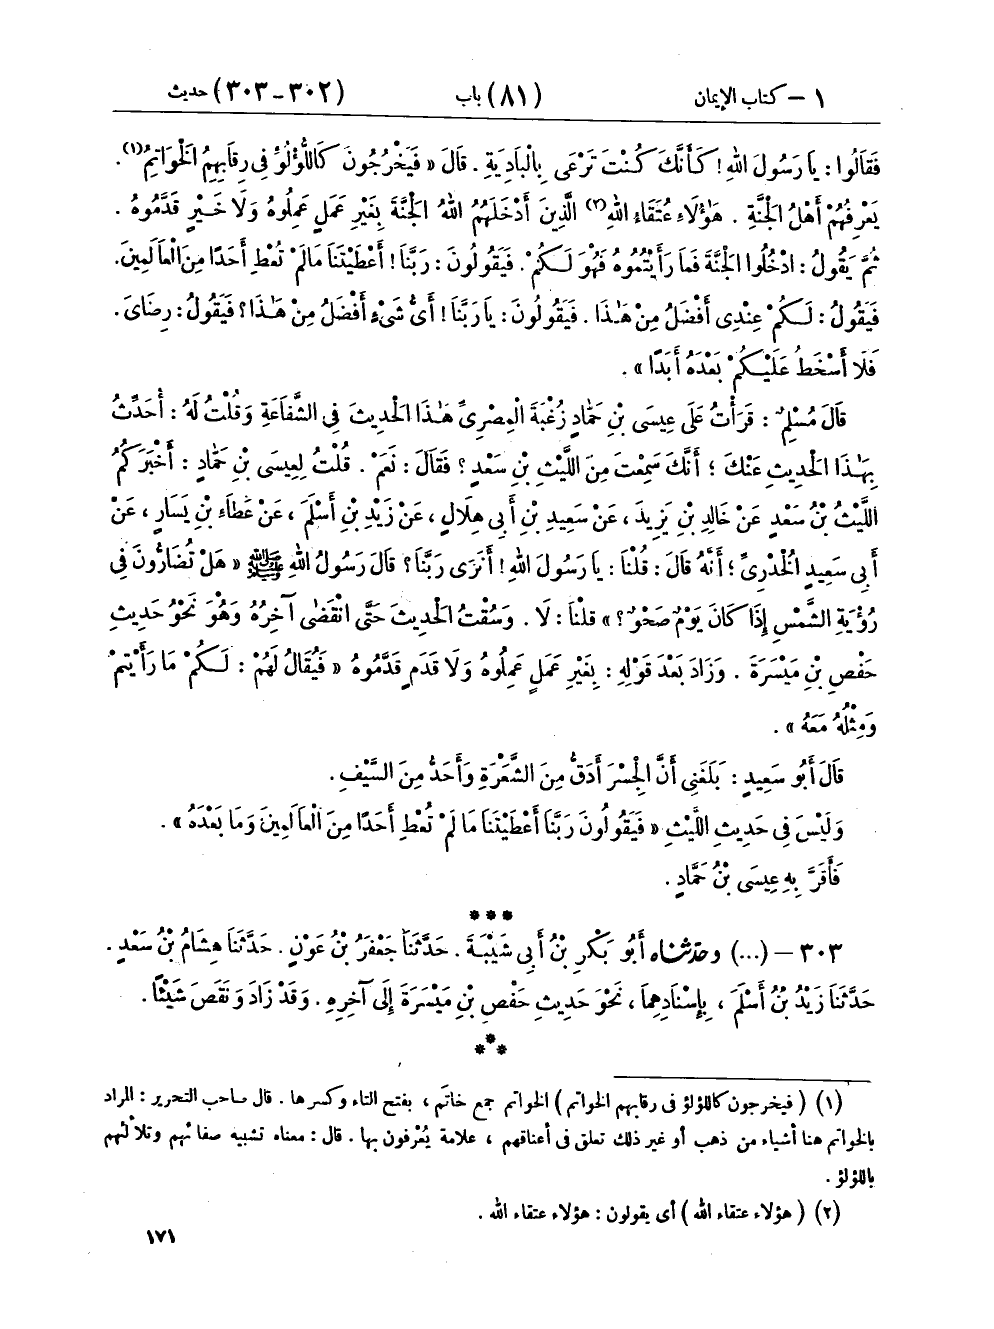 ١ – كتاب الإيمان (٨١) باب (٣٠٢-٣٠٣) حديث
فَقَالُوا : يَا رَسُولَ اللهِ ! كَأَنَّكَ كُنْتَ تَرْعَى بِالْبَادِيَةِ . قَالَ « فَيَخْرُجُونَ كَاللُّؤْلُؤِ فِى رِقَابِهِمُ الْخَوَاتِمُ(١) .
يَعْرِفُهُمْ أَهْلُ الْجَنَّةِ . هَؤُلَاءِ عُتَقَاءُ اللهِ(٢) الَّذِينَ أَدْخَلَهُمُ اللهُ الْجَنَّةَ بِغَيْرِ عَمَلٍ عَمِلُوهُ وَلَا خَيْرٍ قَدَّمُوهُ .
ثُمَّ يَقُولُ : ادْخُلُوا الْجَنَّةَ فَمَا رَأَيْتُمُوهُ فَهُوَ لَكُمْ . فَيَقُولُونَ : رَبَّنَا ! أَعْطَيْتَنَا مَالَمْ تُعْطِ أَحَدًا مِنَ الْعَالَمِينَ .
فَيَقُولُ : لَكُمْ عِنْدِى أَفْضَلُ مِنْ هَٰذَا . فَيَقُولُونَ : يَا رَبَّنَا ! أَىُّ شَىْءٍ أَفْضَلُ مِنْ هَٰذَا ؟ فَيَقُولُ : رِضَاىَ .
فَلَا أَسْخَطُ عَلَيْكُمْ بَعْدَهُ أَبَدًا » .
قَالَ مُسْلِمٌ : قَرَأْتُ عَلَى عِيسَى بْنِ حَمَّادٍ زُغْبَةَ الْمِصْرِىِّ هَٰذَا الْحَدِيثَ فِى الشَّفَاعَةِ وَقُلْتُ لَهُ : أُحَدِّثُ
بِهَٰذَا الْحَدِيثِ عَنْكَ ؛ أَنَّكَ سَمِعْتَ مِنَ اللَّيْثِ بْنِ سَعْدٍ ؟ فَقَالَ : نَعَمْ . قُلْتُ لِعِيسَى بْنِ حَمَّادٍ : أَخْبَرَكُمُ
اللَّيْثُ بْنُ سَعْدٍ عَنْ خَالِدِ بْنِ يَزِيدَ ، عَنْ سَعِيدِ بْنِ أَبِى هِلَالٍ ، عَنْ زَيْدِ بْنِ أَسْلَمَ ، عَنْ عَطَاءِ بْنِ يَسَارٍ ، عَنْ
أَبِى سَعِيدٍ الْخُدْرِىِّ ؛ أَنَّهُ قَالَ : قُلْنَا : يَا رَسُولَ اللهِ ! أَنَرَى رَبَّنَا ؟ قَالَ رَسُولُ اللهِ ﷺ « هَلْ تُضَارُّونَ فِى
رُؤْيَةِ الشَّمْسِ إِذَا كَانَ يَوْمٌ صَحْوٌ ؟ » قُلْنَا : لَا . وَسُقْتُ الْحَدِيثَ حَتَّى انْقَضَى آخِرُهُ وَهُوَ نَحْوُ حَدِيثِ
حَفْصِ بْنِ مَيْسَرَةَ . وَزَادَ بَعْدَ قَوْلِهِ : بِغَيْرِ عَمَلٍ عَمِلُوهُ وَلَا قَدَمٍ قَدَّمُوهُ « فَيُقَالُ لَهُمْ : لَكُمْ مَا رَأَيْتُمْ
وَمِثْلُهُ مَعَهُ » .
قَالَ أَبُو سَعِيدٍ : بَلَغَنِى أَنَّ الْجِسْرَ أَدَقُّ مِنَ الشَّعْرَةِ وَأَحَدُّ مِنَ السَّيْفِ .
وَلَيْسَ فِى حَدِيثِ اللَّيْثِ « فَيَقُولُونَ رَبَّنَا أَعْطَيْتَنَا مَا لَمْ تُعْطِ أَحَدًا مِنَ الْعَالَمِينَ وَمَا بَعْدَهُ » .
فَأَقَرَّ بِهِ عِيسَى بْنُ حَمَّادٍ .
***
٣٠٣ – (...) وحَدَّثَنَاه أَبُو بَكْرِ بْنُ أَبِى شَيْبَةَ . حَدَّثَنَا جَعْفَرُ بْنُ عَوْنٍ . حَدَّثَنَا هِشَامُ بْنُ سَعْدٍ .
حَدَّثَنَا زَيْدُ بْنُ أَسْلَمَ ، بِإِسْنَادِهِمَا ، نَحْوَ حَدِيثِ حَفْصِ بْنِ مَيْسَرَةَ إِلَى آخِرِهِ . وَقَدْ زَادَ وَنَقَصَ شَيْئًا .
***
(١) ( فيخرجون كاللؤلؤ فى رقابهم الخواتم ) الخواتم جمع خاتم ، بفتح التاء وكسرها . قال صاحب التحرير : المراد
بالخواتم هنا أشياء من ذهب أو غير ذلك تعلق فى أعناقهم ، علامة يُعْرفون بها . قال : معناه تشبيه صفائهم وتلألئهم
باللؤلؤ .
(٢) ( هؤلاء عتقاء الله ) أى يقولون : هؤلاء عتقاء الله .
١٧١